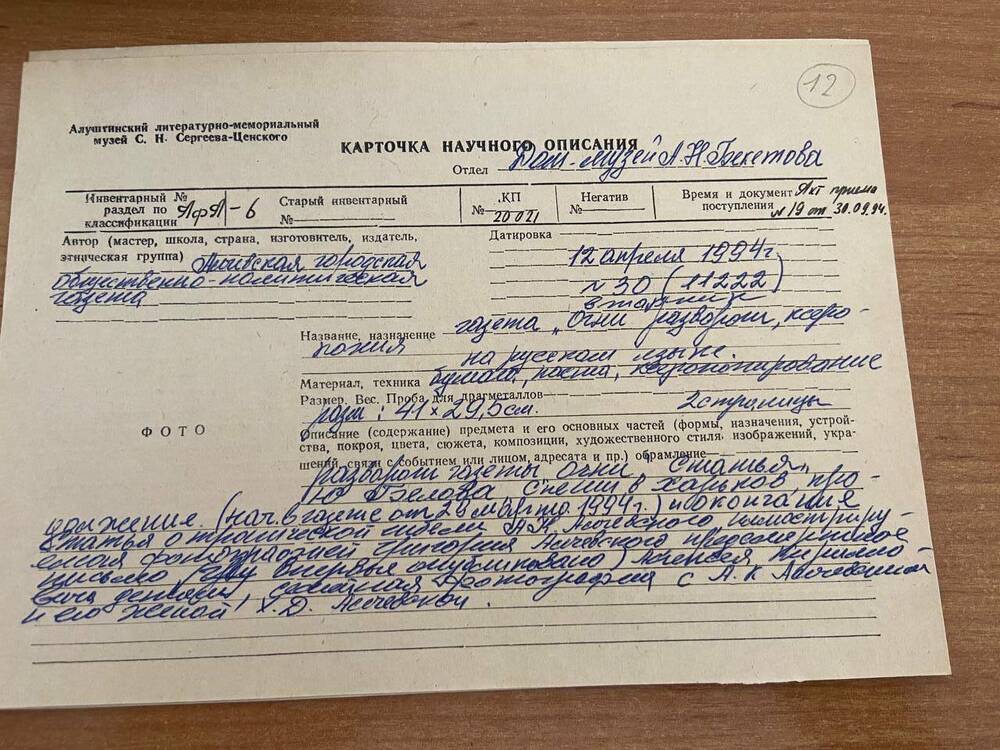 12
Алуштинский литературно-мемориальный
музей С. Н. Сергеева-Ценского
КАРТОЧКА НАУЧНОГО ОПИСАНИЯ
Отдел Дом-музей А.Н. Бекетова
Инвентарный №
раздел по
классификации АФЛ-6
Старый инвентарный
№
КП
№ 20021
Негатив
№
Время и документ
поступления Акт приема
№ 19 от 30.09.94.
Автор (мастер, школа, страна, изготовитель, издатель,
этническая группа) Алчевская городская
общественно-политическая
газета
Датировка
12 апреля 1994г.
№ 30 (11222)
вторник
Название, назначение газета „Огни" разворот, ксеро-
копия
на русском языке.
Материал, техника бумага, паста, ксерокопирование
Размер. Вес. Проба для драгметаллов
разм: 41×29,5 см. 2 страницы
ФОТО
Описание (содержание) предмета и его основных частей (формы, назначения, устрой-
ства, покроя, цвета, сюжета, композиции, художественного стиля изображений, укра-
шений, связи с событием или лицом, адресата и пр.) обрамление
разворот газеты Огни. Статья
Ю Белова Спеши в Харьков, про-
должение. (нач. в газете от 29 марта 1994г.) и окончание
статьи о трагической гибели А.К Алчевского, иллюстриру-
емая фотографией Григория Алчевского предсмертное
письмо впервые опубликовано) Алексея Кирилло-
вича фотография с А. К Алчевским
и его женой Х.Д. Алчевской.